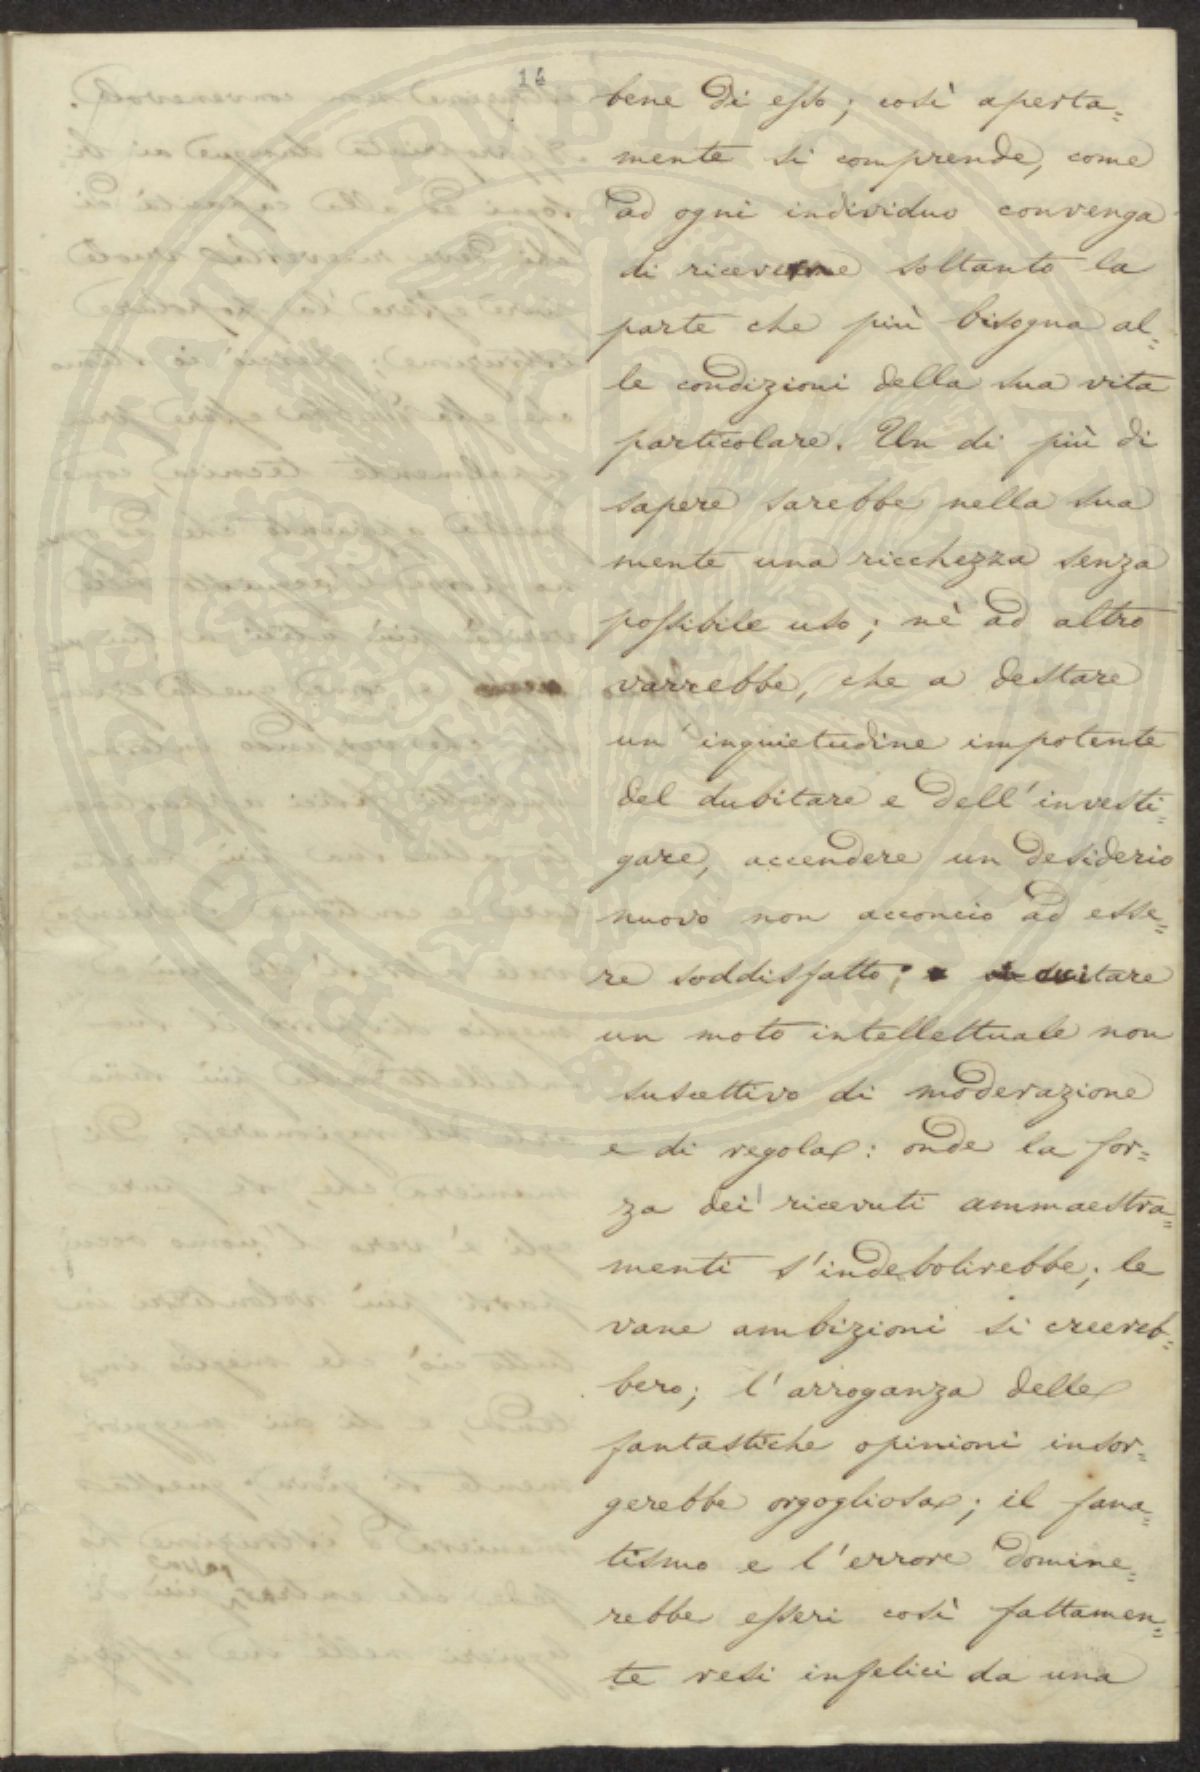 14
bene di esso; così aperta=
mente si comprende, come
ad ogni individuo convenga
di riceverne soltanto la
parte che più bisogna al=
le condizioni della sua vita
particolare. Un di più di
sapere sarebbe nella sua
mente una ricchezza senza
possibile uso; nè ad altro
varrebbe, che a destare
un' inquietudine impotente
del dubitare e dell'investi=
gare, accendere un desiderio
nuovo non acconcio ad esse=
re soddisfatto;
un moto intellettuale non
suscettivo di moderazione
e di regola: onde la for=
za dei ricevuti ammaestra=
menti s'indebolirebbe; le
vane ambizioni si creereb=
bero; l'arroganza delle
fantastiche opinioni insor=
gerebbe orgogliosa; il fana=
tismo e l'errore domine=
rebbe esseri così fattamen=
te resi infelici da una